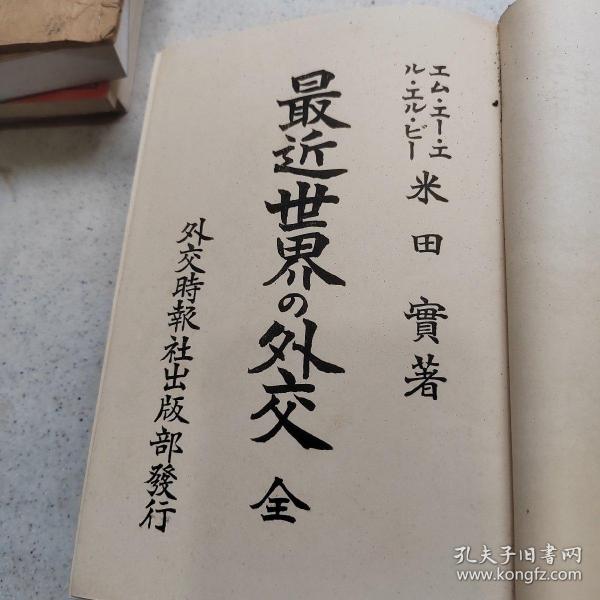 エム・エー・エ
ル・エル・ビー
米田實著
最近世界の外交 全
外交時報社出版部發行
孔夫子旧書网
www.kongfz.com